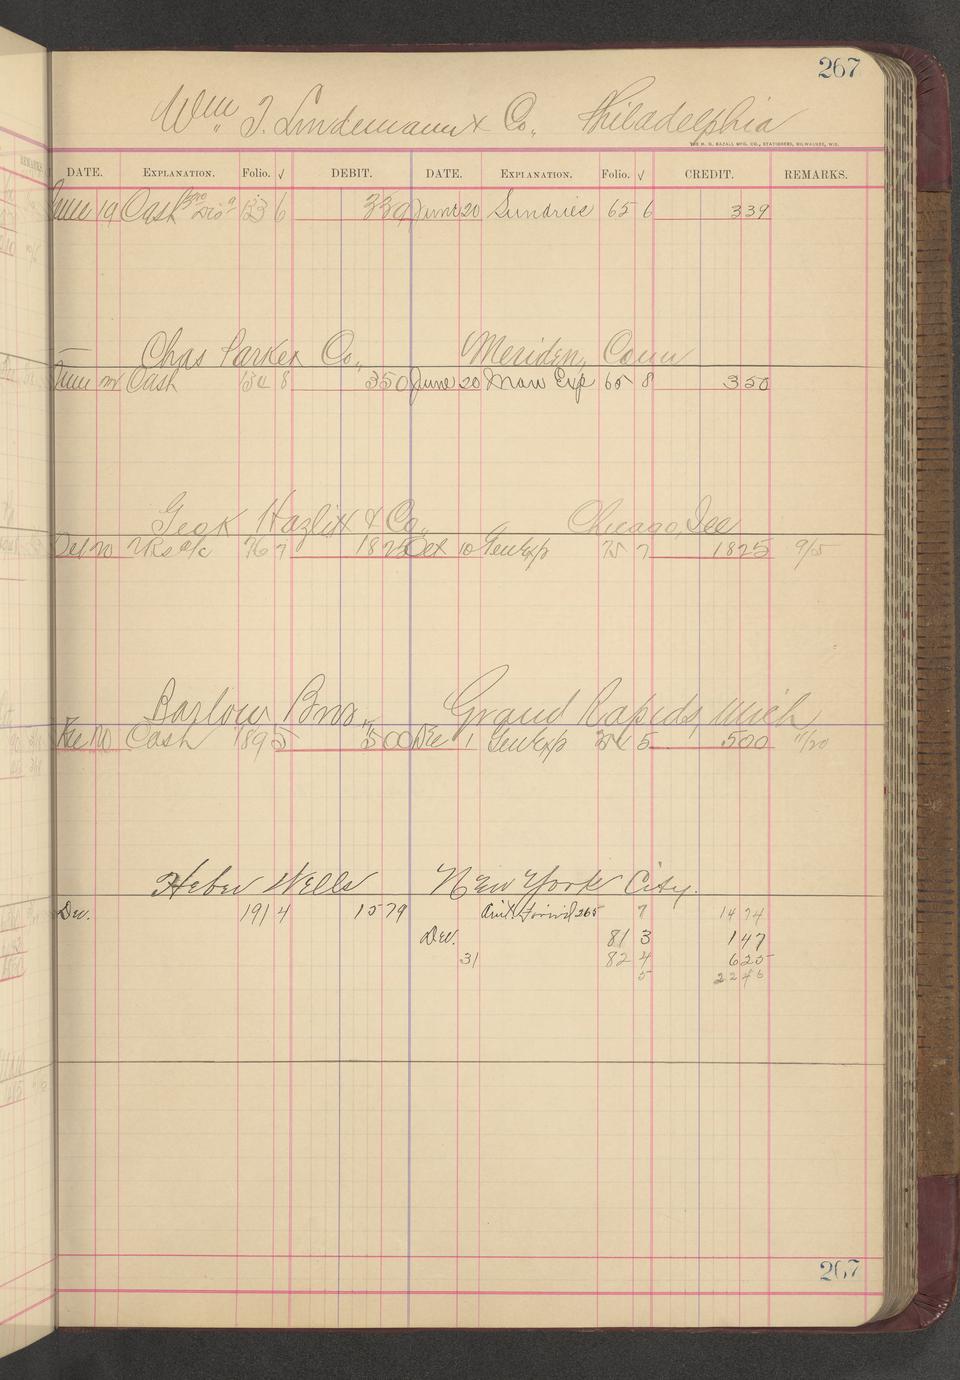 267
Wm. J. Lindemann & Co., Philadelphia
THE H. G. RAZALL MFG. CO., STATIONERS, MILWAUKEE, WIS.
DATE. EXPLANATION. Folio. √ DEBIT. DATE. EXPLANATION. Folio. √ CREDIT. REMARKS.
June 19 Cash 6 339 June 20 Sundries 65 6 339
Chas Parker Co., Meriden, Conn
June Cash 8 350 June 20 Man Exp 65 8 350
Geo K Hazlitt & Co., Chicago, Ill
Oct 20 a/c 76 7 1825 Oct 10 Gen Exp 75 7 1825 9/5
Barlow Bros., Grand Rapids, Mich
Dec 20 Cash 189 5 500 Dec 1 Gen Exp 5 500 11/20
Heber Wells New York City.
Dec. 191 4 1579 Amt Forwd 265 7 1474
Dec. 81 3 147
31 82 4 625
5 2246
267